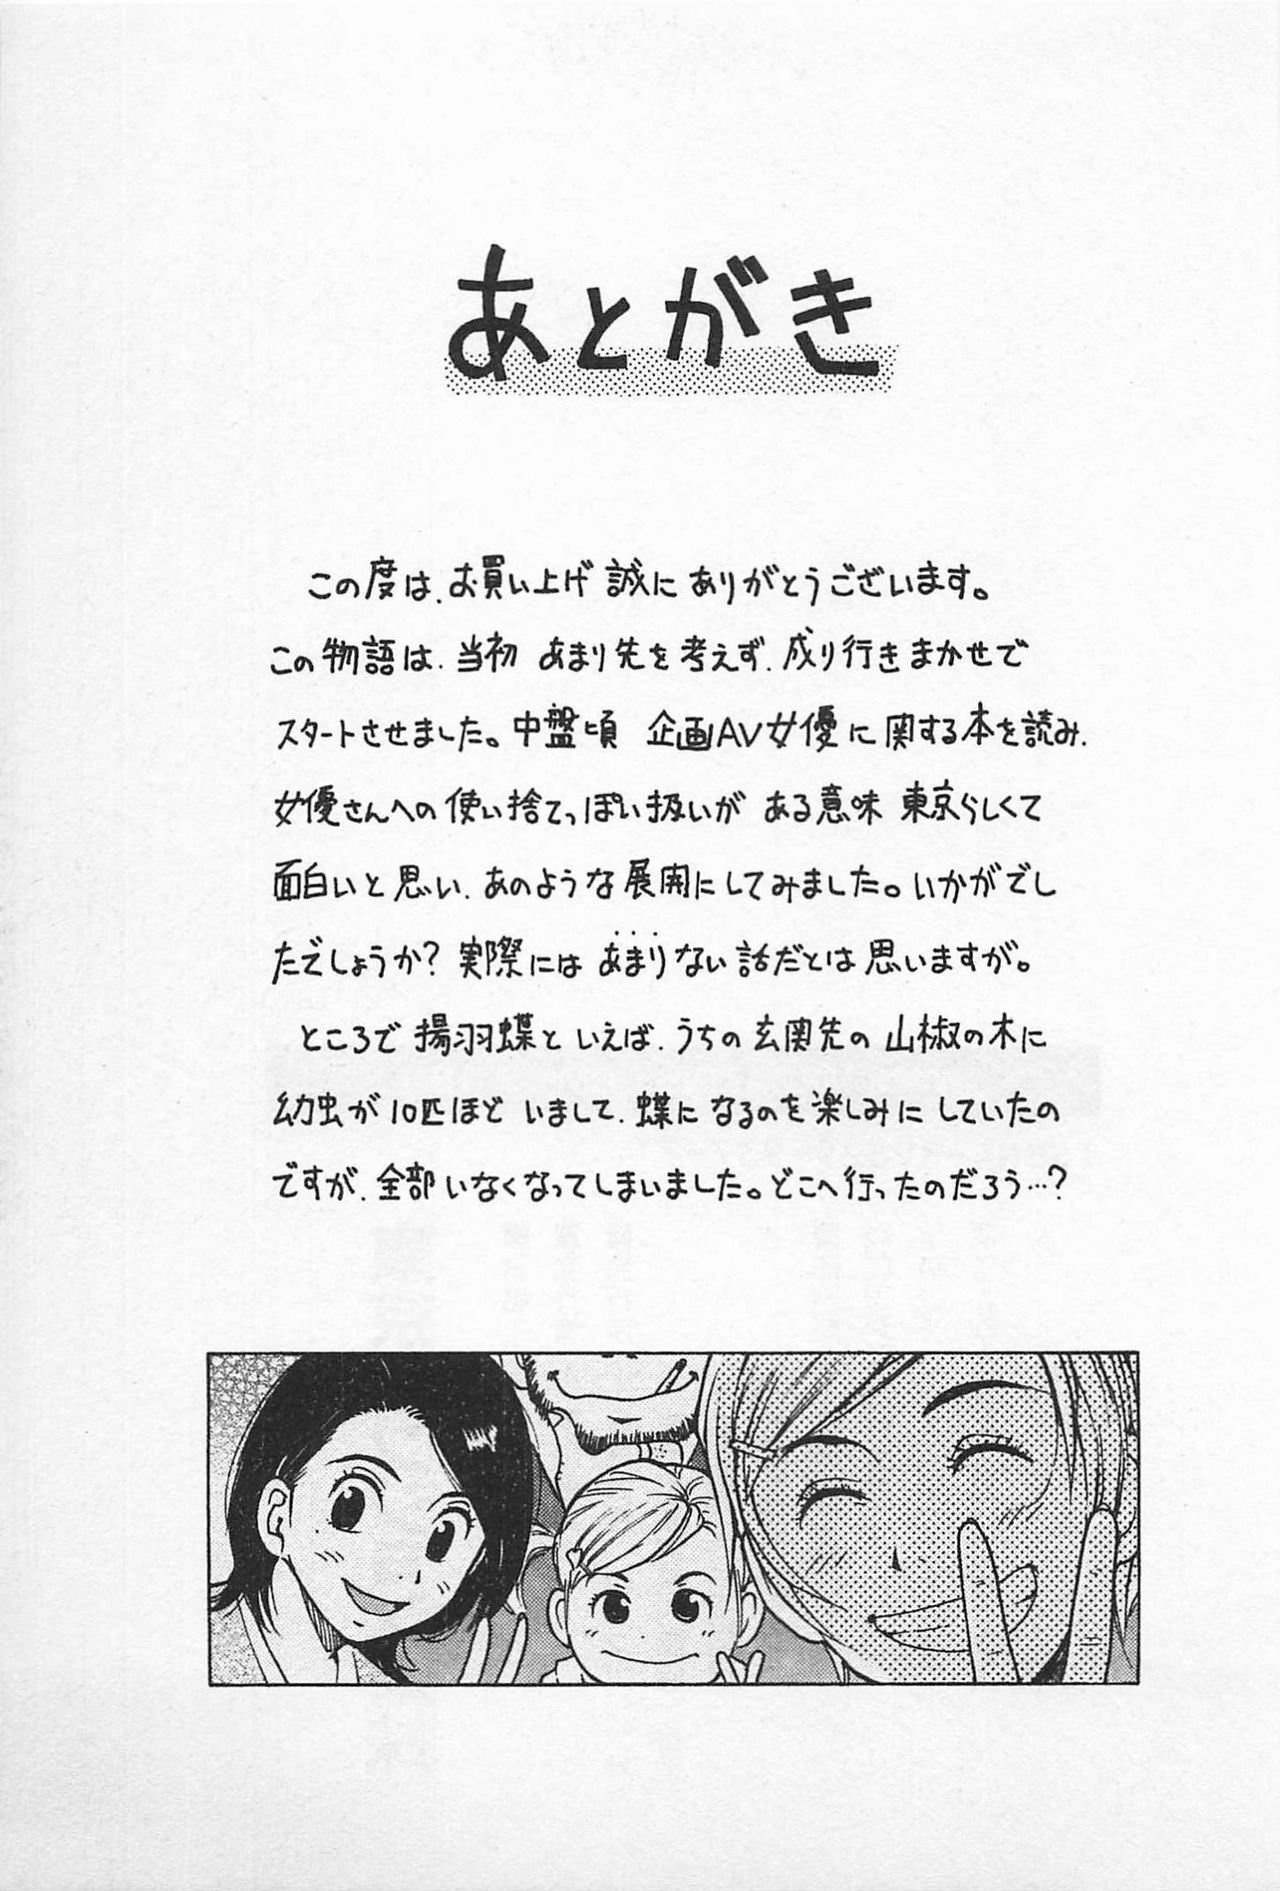 あとがき
この度は、お買い上げ 誠に ありがとうございます。
この物語は、当初 あまり先を考えず、成り行きまかせで
スタートさせました。中盤頃 企画AV女優に関する本を読み、
女優さんへの使い捨てっぽい扱いが ある意味 東京らしくて
面白いと思い、あのような展開にしてみました。いかがでし
たでしょうか？ 実際には あまりない話だとは思いますが。
ところで 揚羽蝶といえば、うちの玄関先の山椒の木に
幼虫が10匹ほど いまして、蝶になるのを楽しみにしていたの
ですが、全部いなくなってしまいました。どこへ行ったのだろう…？